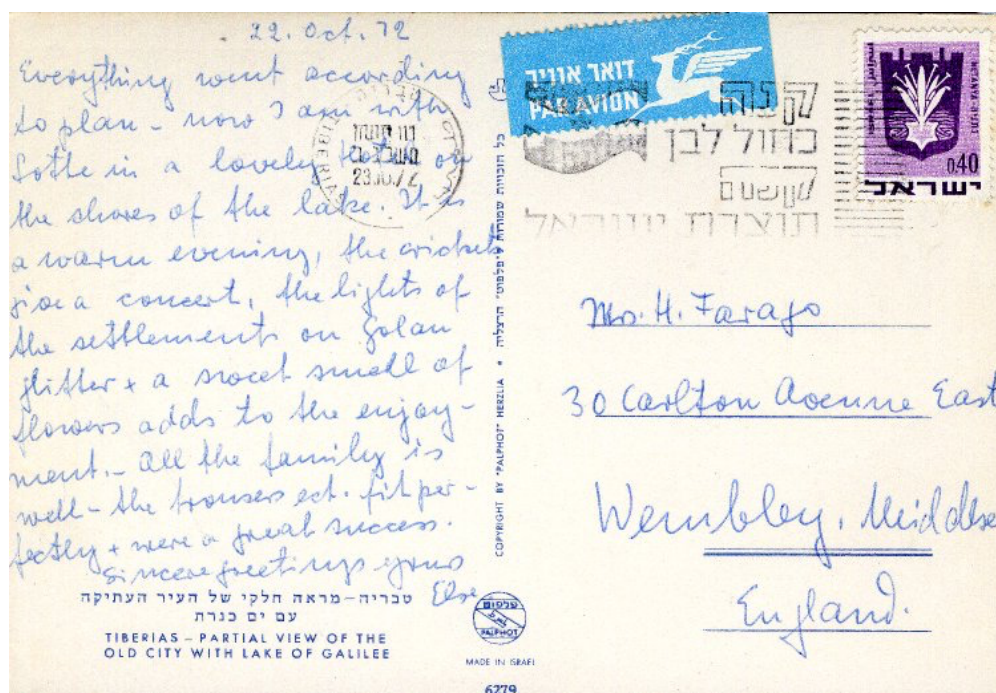 22. Oct. 72
Everything went according
to plan - now I am with
Lotte in a lovely Hotel on
the shores of the lake. It is
a warm evening, the crickets
give a concert, the lights of
the settlements on Golan
glitter + a sweet smell of
flowers adds to the enjoy-
ment. - All the family is
well - the trousers ect. fit per-
fectly + were a great success.
Sincere greetings yours
Else.
טבריה – מראה חלקי של העיר העתיקה
עם ים כנרת
TIBERIAS – PARTIAL VIEW OF THE
OLD CITY WITH LAKE OF GALILEE
COPYRIGHT BY "PALPHOT" HERZLIA • כל הזכויות שמורות ל"פלפוט" הרצליה
פלפוט
PALPHOT
MADE IN ISRAEL
6279
דואר אויר
PAR AVION
TIBERIA
23.10.72
קנה
כחול לבן
תוצרת ישראל
0.40
ישראל
Mrs. H. Farago
30 Carlton Avenue East
Wembley, Middlse
England.